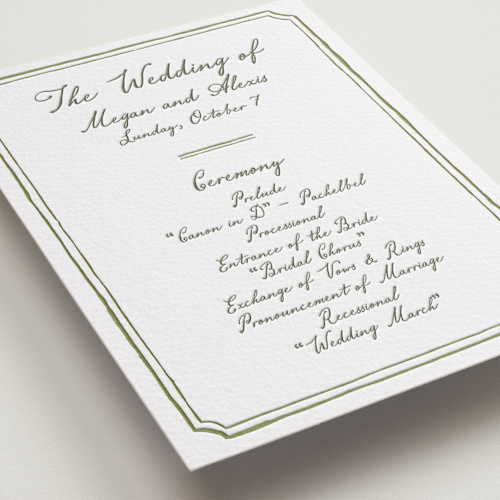 The Wedding of
Megan and Alexis
Sunday, October 7
Ceremony
Prelude
“Canon in D” – Pachelbel
Processional
Entrance of the Bride
“Bridal Chorus”
Exchange of Vows & Rings
Pronouncement of Marriage
Recessional
“Wedding March”